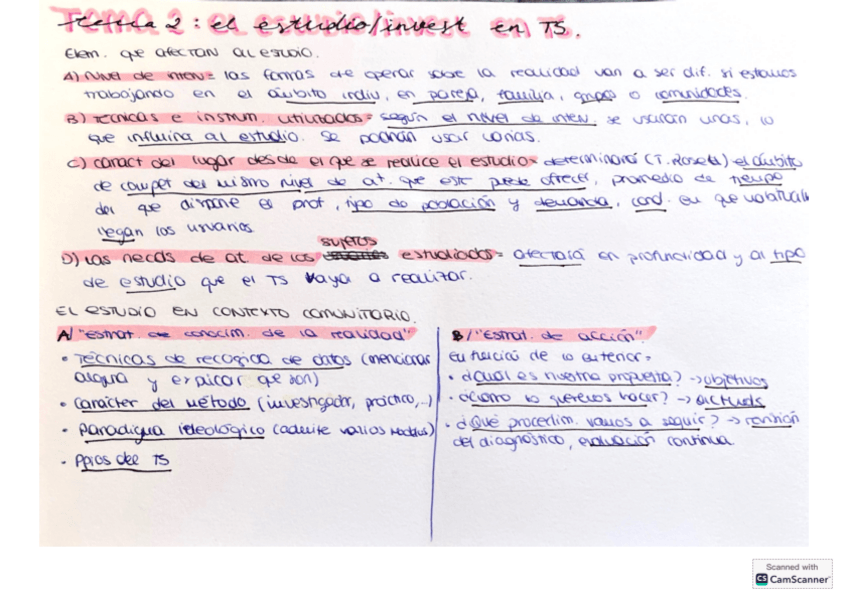 Tema 2: el estudio/invest en TS.
Elem. que afectan al estudio.
A) Nivel de interv = las formas de operar sobre la realidad van a ser dif. si estamos
trabajando en el ámbito indiv, en pareja, familia, grupos o comunidades.
B) Técnicas e instrum. utilizados = según el nivel de interv. se usarán unas, lo
que influirá al estudio. Se podrán usar varias.
C) caract del lugar desde el que se realice el estudio = determinará (T. Rosell) el ámbito
de compet del mismo nivel de at. que este puede ofrecer, promedio de tiempo
del que dispone el prof, tipo de población y demanda, cond. en que habitual
llegan los usuarios
D) Las necds de at. de los sujetos estudiados = afectará en profundidad y al tipo
de estudio que el TS vaya a realizar.
EL ESTUDIO EN CONTEXTO COMUNITARIO.
A/ "estrat. de conocim. de la realidad"
• Técnicas de recogida de datos (mencionar
alguna y explicar que son)
• Carácter del método (investigador, práctico,..)
• Paradigma ideológico (admite varios modelos)
• Ppios del TS
B/ "Estrat. de acción"
En función de lo anterior =
• ¿Cuál es nuestra propuesta? → objetivos
• ¿Cómo lo queremos hacer? → actuds
• ¿Qué procedim. vamos a seguir? → revisión
del diagnóstico, evaluación continua
Scanned with
CS CamScanner